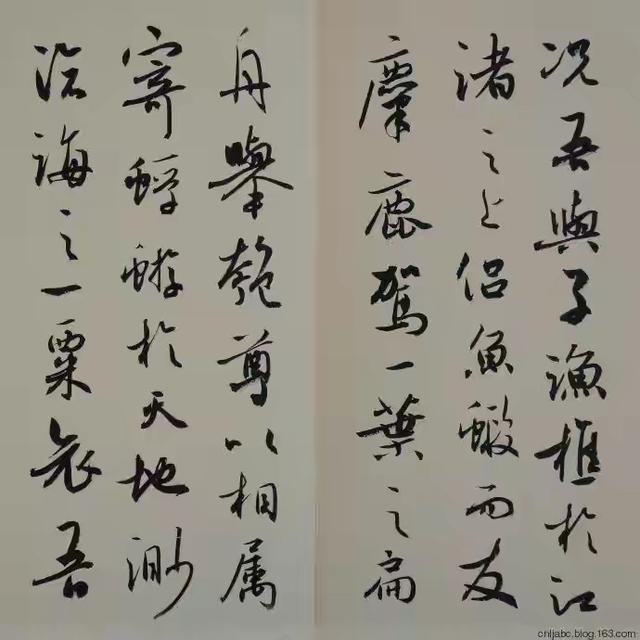 况吾與子漁樵於江
渚之上侣魚蝦而友
麋鹿駕一葉之扁
舟舉匏尊以相属
寄蜉蝣於天地渺
滄海之一粟哀吾
cnljabc.blog.163.com